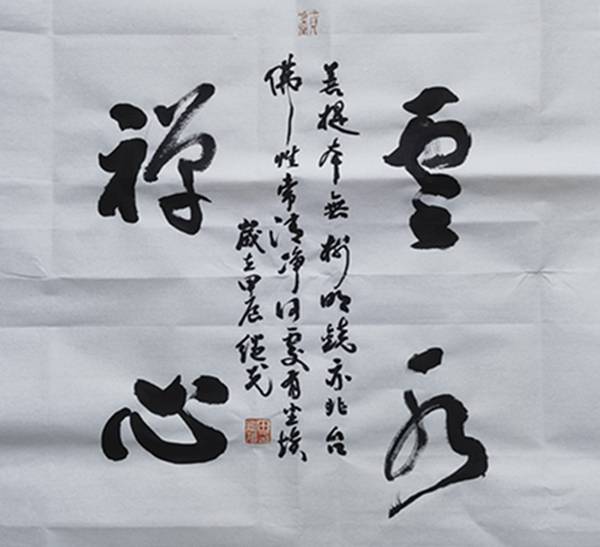 雲水
菩提本無樹明鏡亦非台
佛性常清净何處有尘埃
歲在甲辰继光
禅心